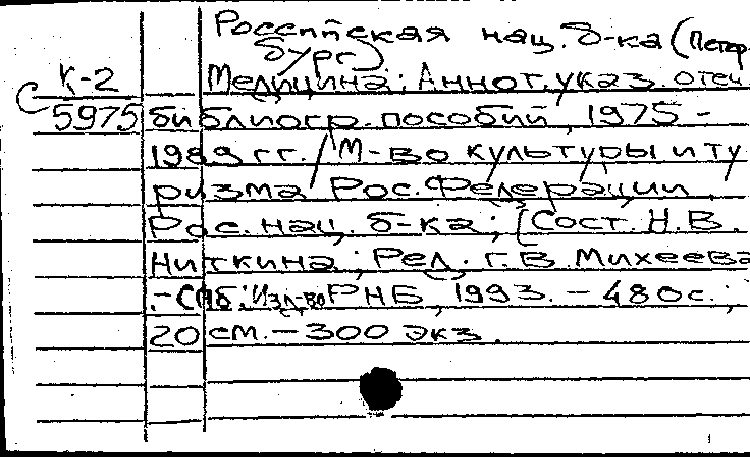 Российская нац. б-ка (Петер
бург)
К-2 Медицина: Аннот. указ. отеч
С 5975 библиогр. пособий, 1975 -
1989 гг. / М-во культуры и ту
ризма Рос. Федерации,
Рос. нац. б-ка; [Сост. Н.В.
Ниткина; Ред. Г.В. Михеева
. - СПб: Изд-во РНБ, 1993. - 480 с.;
20 см. - 300 экз.